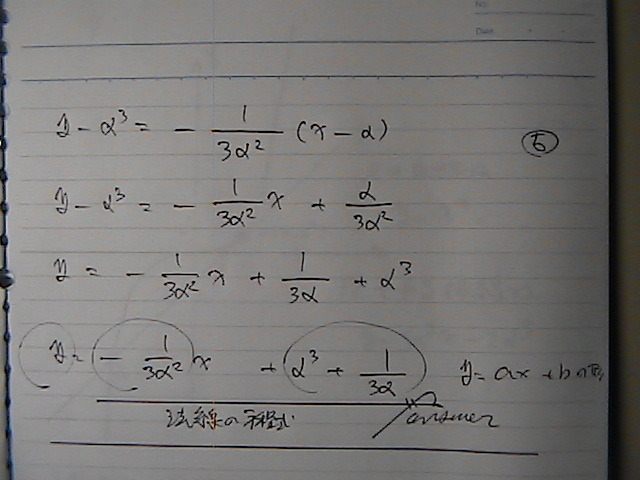 No.
Date
y - α³ = - 1/3α² (x - α)
⑤
y - α³ = - 1/3α² x + α/3α²
y = - 1/3α² x + 1/3α + α³
y = - 1/3α² x + α³ + 1/3α y = ax + b の形
法線の方程式 answer